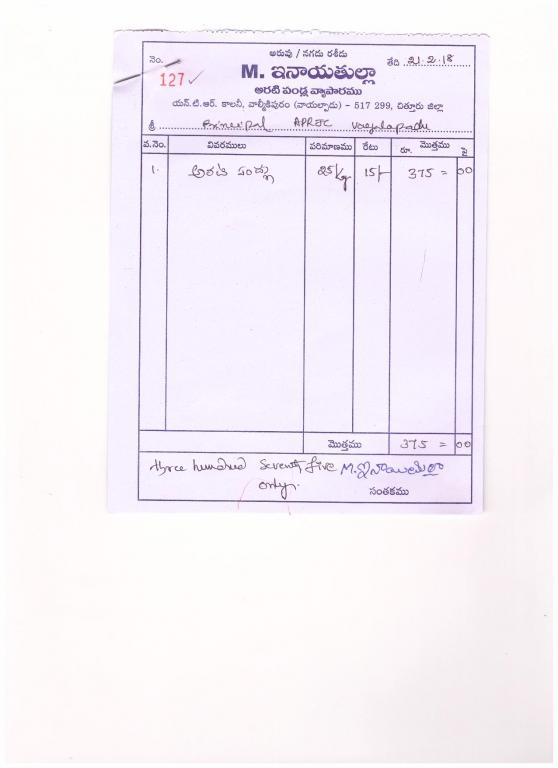 అరువు / నగదు రశీదు
నెం. 127 ✓
తేది 21.2.18
M. ఇనాయతుల్లా
అరటి పండ్ల వ్యాపారము
యన్.టి.ఆర్. కాలనీ, వాల్మీకిపురం (వాయల్పాడు) - 517 299, చిత్తూరు జిల్లా
శ్రీ Principal APRJC Vayalapadu
వ.నెం. వివరములు పరిమాణము రేటు మొత్తము రూ. పై
1. అరటి పండ్లు 25/kg 15/- 375 = 00
మొత్తము 375 = 00
three hundred Seventy five M.ఇనాయతుల్లా
only.
సంతకము